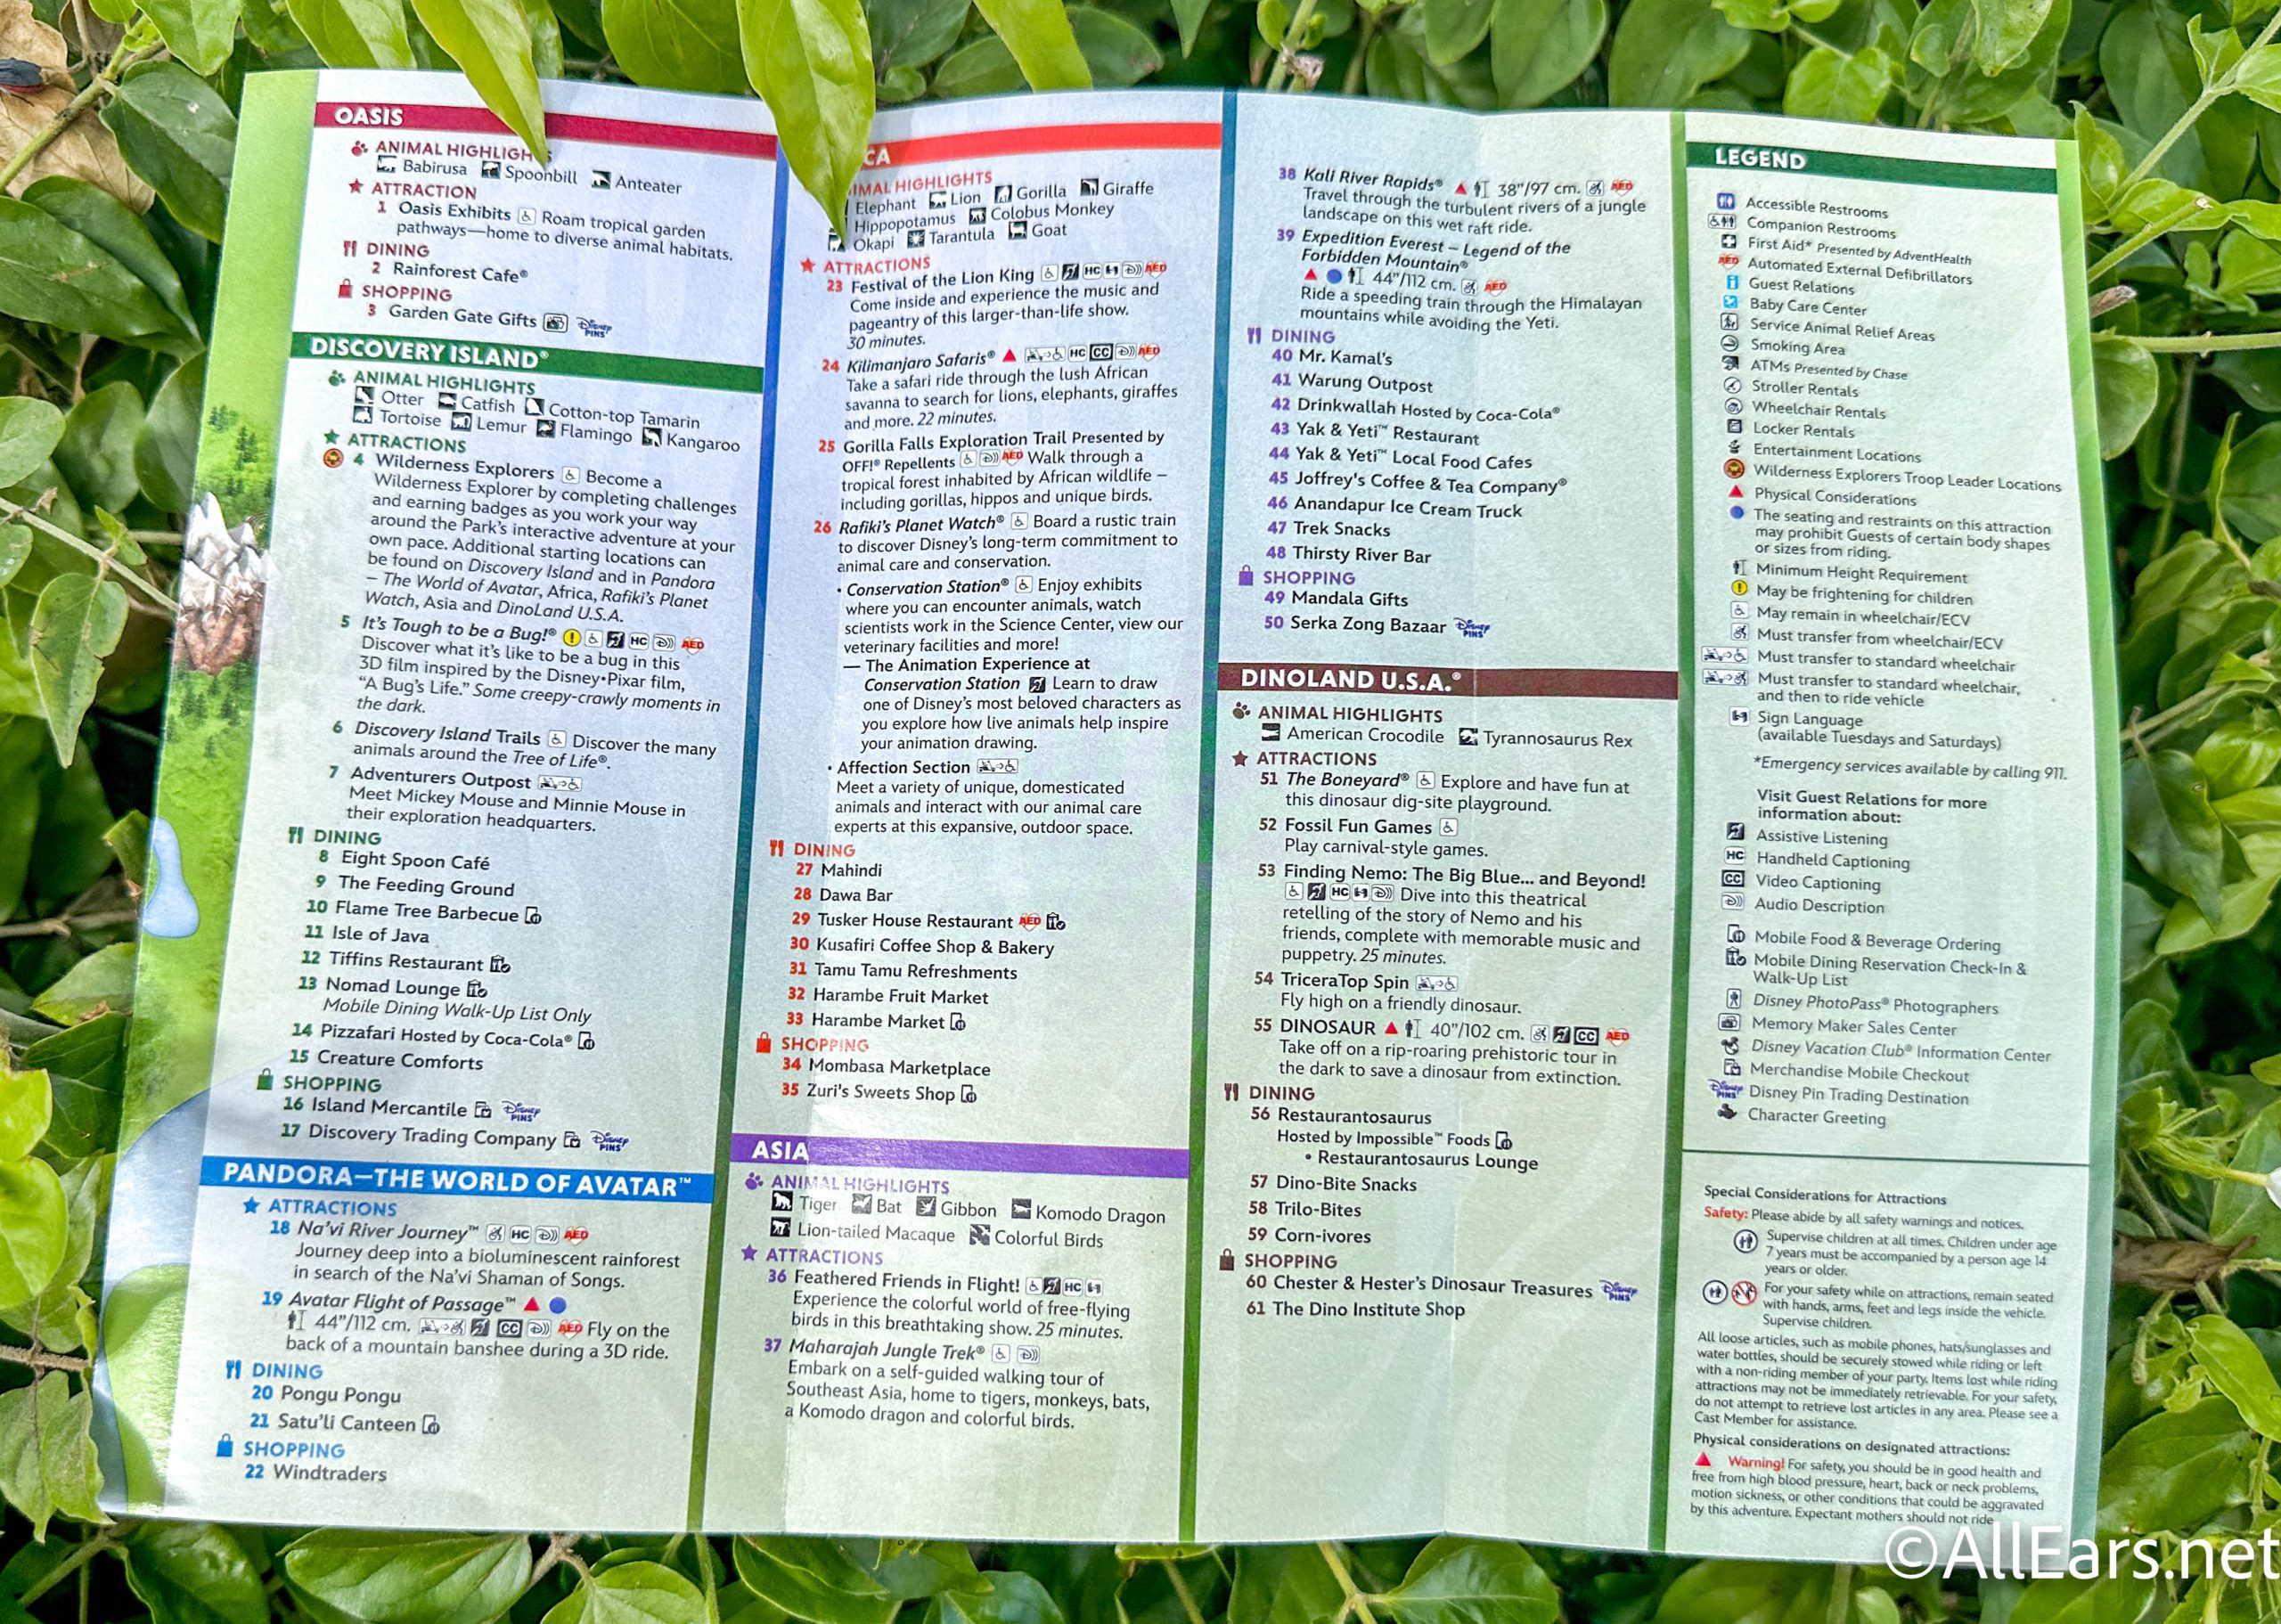 OASIS
ANIMAL HIGHLIGH
Babirusa Spoonbill Anteater
ATTRACTION
1 Oasis Exhibits Roam tropical garden
pathways—home to diverse animal habitats.
DINING
2 Rainforest Cafe®
SHOPPING
3 Garden Gate Gifts Disney PINS
DISCOVERY ISLAND®
ANIMAL HIGHLIGHTS
Otter Catfish Cotton-top Tamarin
Tortoise Lemur Flamingo Kangaroo
ATTRACTIONS
4 Wilderness Explorers Become a
Wilderness Explorer by completing challenges
and earning badges as you work your way
around the Park's interactive adventure at your
own pace. Additional starting locations can
be found on Discovery Island and in Pandora
– The World of Avatar, Africa, Rafiki's Planet
Watch, Asia and DinoLand U.S.A.
5 It's Tough to be a Bug!® ! HC D)) AED
Discover what it's like to be a bug in this
3D film inspired by the Disney•Pixar film,
"A Bug's Life." Some creepy-crawly moments in
the dark.
6 Discovery Island Trails Discover the many
animals around the Tree of Life®.
7 Adventurers Outpost
Meet Mickey Mouse and Minnie Mouse in
their exploration headquarters.
DINING
8 Eight Spoon Café
9 The Feeding Ground
10 Flame Tree Barbecue
11 Isle of Java
12 Tiffins Restaurant
13 Nomad Lounge
Mobile Dining Walk-Up List Only
14 Pizzafari Hosted by Coca-Cola®
15 Creature Comforts
SHOPPING
16 Island Mercantile Disney PINS
17 Discovery Trading Company Disney PINS
PANDORA—THE WORLD OF AVATAR™
ATTRACTIONS
18 Na'vi River Journey™ HC D)) AED
Journey deep into a bioluminescent rainforest
in search of the Na'vi Shaman of Songs.
19 Avatar Flight of Passage™
44"/112 cm. CC D)) AED Fly on the
back of a mountain banshee during a 3D ride.
DINING
20 Pongu Pongu
21 Satu'li Canteen
SHOPPING
22 Windtraders
CA
IMAL HIGHLIGHTS
Elephant Lion Gorilla Giraffe
Hippopotamus Colobus Monkey
Okapi Tarantula Goat
ATTRACTIONS
23 Festival of the Lion King HC D)) AED
Come inside and experience the music and
pageantry of this larger-than-life show.
30 minutes.
24 Kilimanjaro Safaris® HC CC D)) AED
Take a safari ride through the lush African
savanna to search for lions, elephants, giraffes
and more. 22 minutes.
25 Gorilla Falls Exploration Trail Presented by
OFF!® Repellents D)) AED Walk through a
tropical forest inhabited by African wildlife –
including gorillas, hippos and unique birds.
26 Rafiki's Planet Watch® Board a rustic train
to discover Disney's long-term commitment to
animal care and conservation.
• Conservation Station® Enjoy exhibits
where you can encounter animals, watch
scientists work in the Science Center, view our
veterinary facilities and more!
— The Animation Experience at
Conservation Station Learn to draw
one of Disney's most beloved characters as
you explore how live animals help inspire
your animation drawing.
• Affection Section
Meet a variety of unique, domesticated
animals and interact with our animal care
experts at this expansive, outdoor space.
DINING
27 Mahindi
28 Dawa Bar
29 Tusker House Restaurant AED
30 Kusafiri Coffee Shop & Bakery
31 Tamu Tamu Refreshments
32 Harambe Fruit Market
33 Harambe Market
SHOPPING
34 Mombasa Marketplace
35 Zuri's Sweets Shop
ASIA
ANIMAL HIGHLIGHTS
Tiger Bat Gibbon Komodo Dragon
Lion-tailed Macaque Colorful Birds
ATTRACTIONS
36 Feathered Friends in Flight! HC
Experience the colorful world of free-flying
birds in this breathtaking show. 25 minutes.
37 Maharajah Jungle Trek® D))
Embark on a self-guided walking tour of
Southeast Asia, home to tigers, monkeys, bats,
a Komodo dragon and colorful birds.
38 Kali River Rapids® 38"/97 cm. AED
Travel through the turbulent rivers of a jungle
landscape on this wet raft ride.
39 Expedition Everest – Legend of the
Forbidden Mountain®
44"/112 cm. AED
Ride a speeding train through the Himalayan
mountains while avoiding the Yeti.
DINING
40 Mr. Kamal's
41 Warung Outpost
42 Drinkwallah Hosted by Coca-Cola®
43 Yak & Yeti™ Restaurant
44 Yak & Yeti™ Local Food Cafes
45 Joffrey's Coffee & Tea Company®
46 Anandapur Ice Cream Truck
47 Trek Snacks
48 Thirsty River Bar
SHOPPING
49 Mandala Gifts
50 Serka Zong Bazaar Disney PINS
DINOLAND U.S.A.®
ANIMAL HIGHLIGHTS
American Crocodile Tyrannosaurus Rex
ATTRACTIONS
51 The Boneyard® Explore and have fun at
this dinosaur dig-site playground.
52 Fossil Fun Games
Play carnival-style games.
53 Finding Nemo: The Big Blue... and Beyond!
HC D)) Dive into this theatrical
retelling of the story of Nemo and his
friends, complete with memorable music and
puppetry. 25 minutes.
54 TriceraTop Spin
Fly high on a friendly dinosaur.
55 DINOSAUR 40"/102 cm. CC AED
Take off on a rip-roaring prehistoric tour in
the dark to save a dinosaur from extinction.
DINING
56 Restaurantosaurus
Hosted by Impossible™ Foods
• Restaurantosaurus Lounge
57 Dino-Bite Snacks
58 Trilo-Bites
59 Corn-ivores
SHOPPING
60 Chester & Hester's Dinosaur Treasures Disney PINS
61 The Dino Institute Shop
LEGEND
Accessible Restrooms
Companion Restrooms
First Aid* Presented by AdventHealth
AED Automated External Defibrillators
Guest Relations
Baby Care Center
Service Animal Relief Areas
Smoking Area
ATMs Presented by Chase
Stroller Rentals
Wheelchair Rentals
Locker Rentals
Entertainment Locations
Wilderness Explorers Troop Leader Locations
Physical Considerations
The seating and restraints on this attraction
may prohibit Guests of certain body shapes
or sizes from riding.
Minimum Height Requirement
! May be frightening for children
May remain in wheelchair/ECV
Must transfer from wheelchair/ECV
Must transfer to standard wheelchair
Must transfer to standard wheelchair,
and then to ride vehicle
Sign Language
(available Tuesdays and Saturdays)
*Emergency services available by calling 911.
Visit Guest Relations for more
information about:
Assistive Listening
HC Handheld Captioning
CC Video Captioning
D)) Audio Description
Mobile Food & Beverage Ordering
Mobile Dining Reservation Check-In &
Walk-Up List
Disney PhotoPass® Photographers
Memory Maker Sales Center
Disney Vacation Club® Information Center
Merchandise Mobile Checkout
Disney PINS Disney Pin Trading Destination
Character Greeting
Special Considerations for Attractions
Safety: Please abide by all safety warnings and notices.
Supervise children at all times. Children under age
7 years must be accompanied by a person age 14
years or older.
For your safety while on attractions, remain seated
with hands, arms, feet and legs inside the vehicle.
Supervise children.
All loose articles, such as mobile phones, hats/sunglasses and
water bottles, should be securely stowed while riding or left
with a non-riding member of your party. Items lost while riding
attractions may not be immediately retrievable. For your safety,
do not attempt to retrieve lost articles in any area. Please see a
Cast Member for assistance.
Physical considerations on designated attractions:
Warning! For safety, you should be in good health and
free from high blood pressure, heart, back or neck problems,
motion sickness, or other conditions that could be aggravated
by this adventure. Expectant mothers should not ride
©AllEars.net